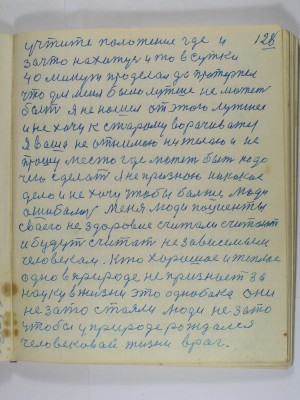 128
учтите положение где и
зачто нахожуся и то в сутки
40 минут проделал да протерпел
что для меня было лутше не может
быть Я не нашел от этого лутшего
и не хочу к старому ворачиватся
Я ваша не отнимаю ни желаю и не
прошу место где может быть надо
чего сделат Я не признаю никакое
дело и не хочу чтобы больше люди
ошибались меня люди пациенты
своего не здоровие считали считают
и будут считат не зависимым
человекам. Кто хорошее и теплое
одно в природе не признает за
науку в жизни это однобака они
не зато стояли люди не зато
чтобы у природе рождался
человековай жизни враг.